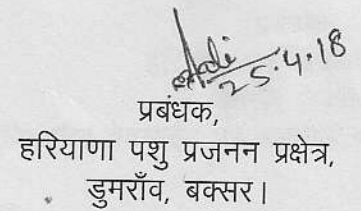 25.4.18
प्रबंधक,
हरियाणा पशु प्रजनन प्रक्षेत्र,
डुमराँव, बक्सर।